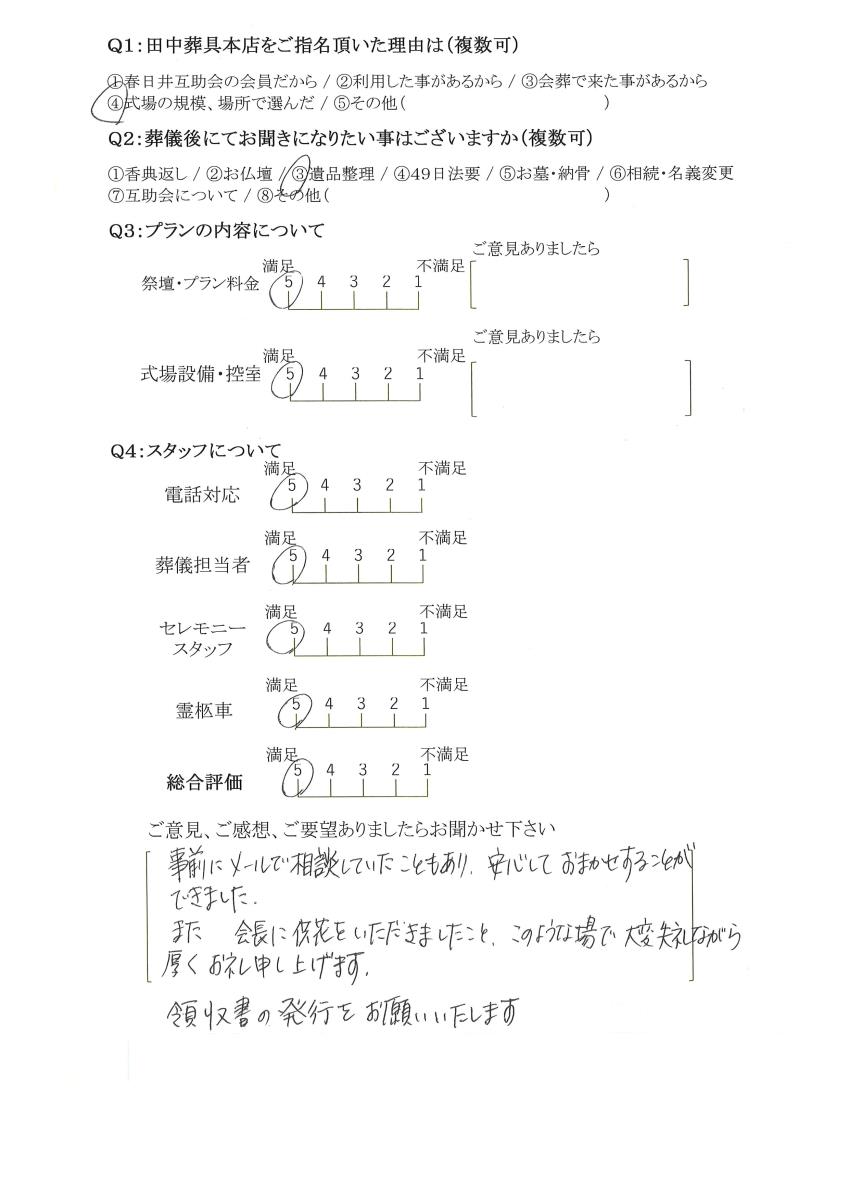 Q1:田中葬具本店をご指名頂いた理由は(複数可)
①春日井互助会の会員だから / ②利用した事があるから / ③会葬で来た事があるから
④式場の規模、場所で選んだ / ⑤その他( )
Q2:葬儀後にてお聞きになりたい事はございますか(複数可)
①香典返し / ②お仏壇 / ③遺品整理 / ④49日法要 / ⑤お墓・納骨 / ⑥相続・名義変更
⑦互助会について / ⑧その他( )
Q3:プランの内容について
ご意見ありましたら
満足 不満足
祭壇・プラン料金 5 4 3 2 1
ご意見ありましたら
満足 不満足
式場設備・控室 5 4 3 2 1
Q4:スタッフについて
満足 不満足
電話対応 5 4 3 2 1
満足 不満足
葬儀担当者 5 4 3 2 1
満足 不満足
セレモニー 5 4 3 2 1
スタッフ
満足 不満足
霊柩車 5 4 3 2 1
満足 不満足
総合評価 5 4 3 2 1
ご意見、ご感想、ご要望ありましたらお聞かせ下さい
事前にメールで相談していたこともあり、安心しておまかせすることが
できました.
また 会長に供花をいただきましたこと、このような場で大変失礼しながら
厚くお礼申し上げます.
領収書の発行をお願いいたします